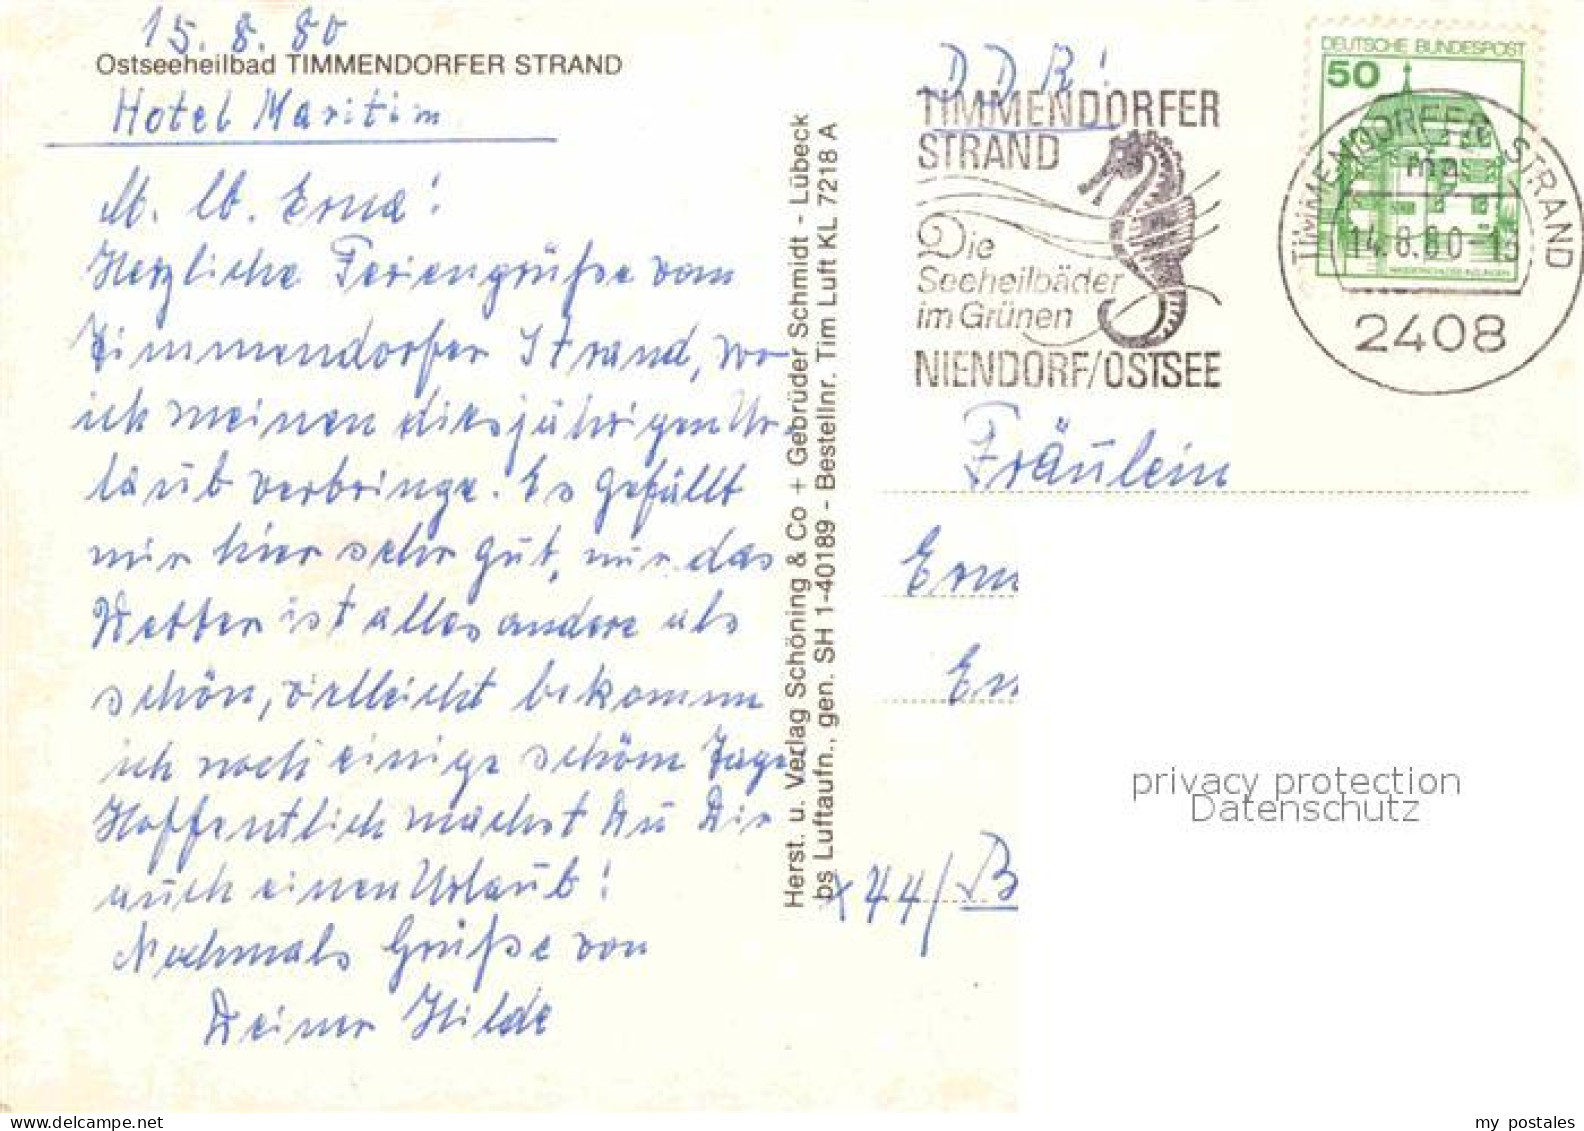 15. 8. 80
Ostseeheilbad TIMMENDORFER STRAND
Hotel Maritim
M. lb. Erna!
Herzliche Feriengrüße vom
Timmendorfer Strand, wo
ich meinen diesjährigen Ur-
laub verbringe. Es gefällt
mir hier sehr gut, nur das
Wetter ist alles andere als
schön, vielleicht bekomme
ich noch einige schöne Tage.
Hoffentlich machst Du Dir
auch einen Urlaub!
Nochmals Grüße von
Deiner Hilde
Herst. u. Verlag Schöning & Co + Gebrüder Schmidt - Lübeck
bs Luftaufn., gen. SH 1-40189 - Bestellnr. Tim Luft KL 7218 A
DDR!
TIMMENDORFER
STRAND
Die
Seeheilbäder
im Grünen
NIENDORF/OSTSEE
DEUTSCHE BUNDESPOST
50
WASSERSCHLOSS INZLINGEN
TIMMENDORFER STRAND
ma
14.8.80-13
2408
Fräulein
Ern
En
x 44/B
privacy protection
Datenschutz
my postales